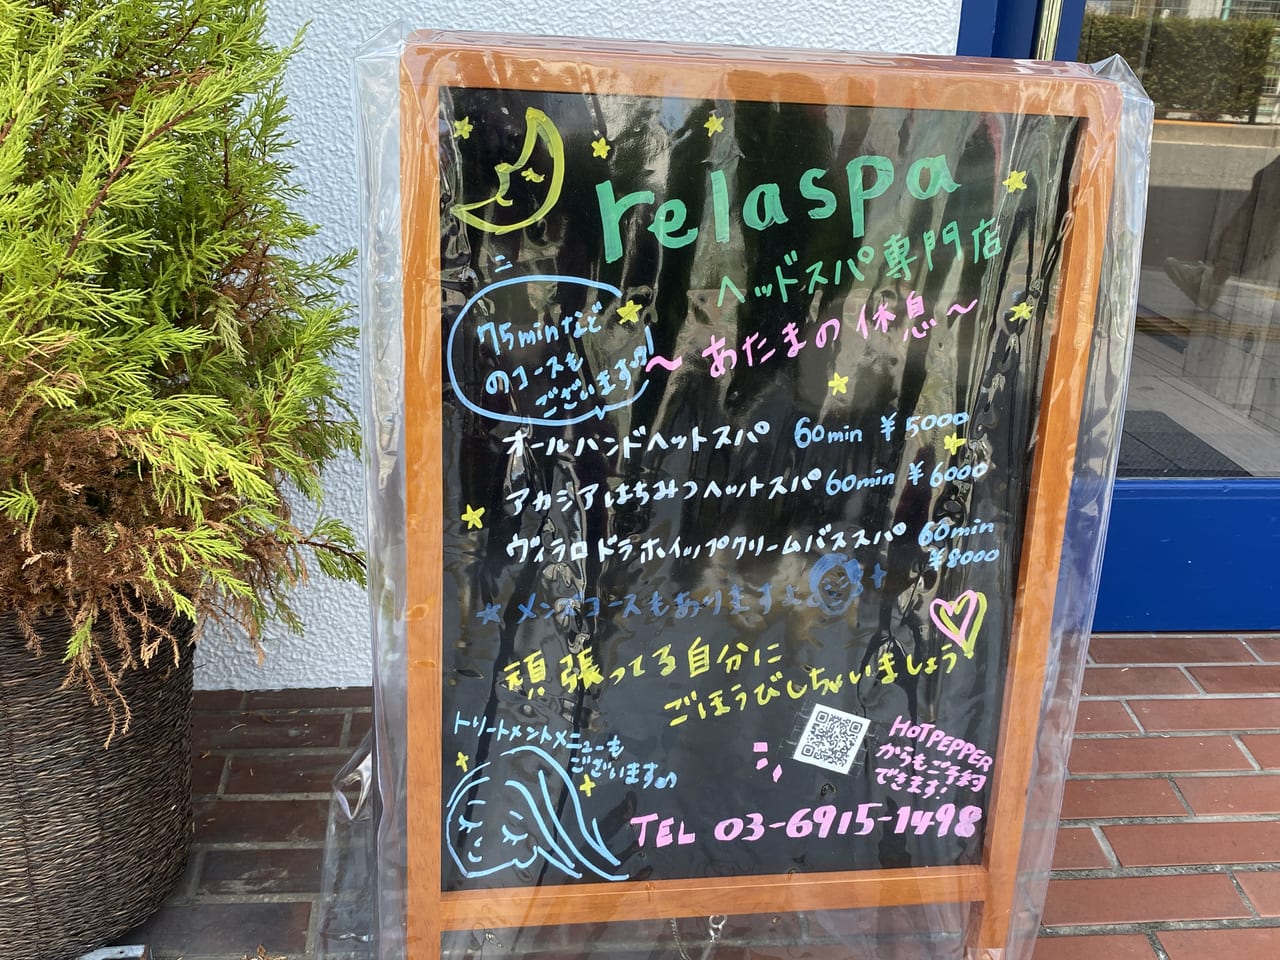 relaspa
ヘッドスパ専門店
～あたまの休息～
75minなど
のコースも
ございます♪
オールハンドヘットスパ 60min ¥5000
アカシアはちみつヘットスパ 60min ¥6000
ヴィラロドラホイップクリームバススパ 60min
¥8000
★メンズコースもあります
頑張ってる自分に
ごほうびしちゃいましょう
トリートメントメニューも
ございます♪
HOTPEPPER
からもご予約
できます!
TEL 03-6915-1498